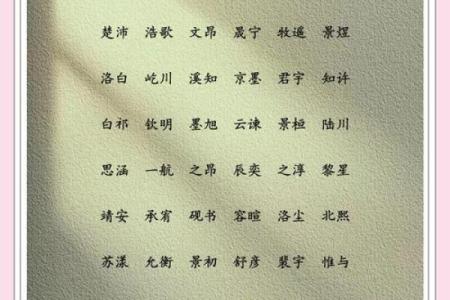 楚沛 浩歌 文昂 晟宁 牧遥 景煜
洛白 屹川 溪知 京墨 君宇 知许
白祁 钦明 墨旭 云谏 景桓 陆川
思涵 一航 之昂 辰奕 之淳 黎星
靖安 承宥 砚书 容暄 洛尘 北熙
苏漾 允衡 景初 舒彦 裴宇 惟与